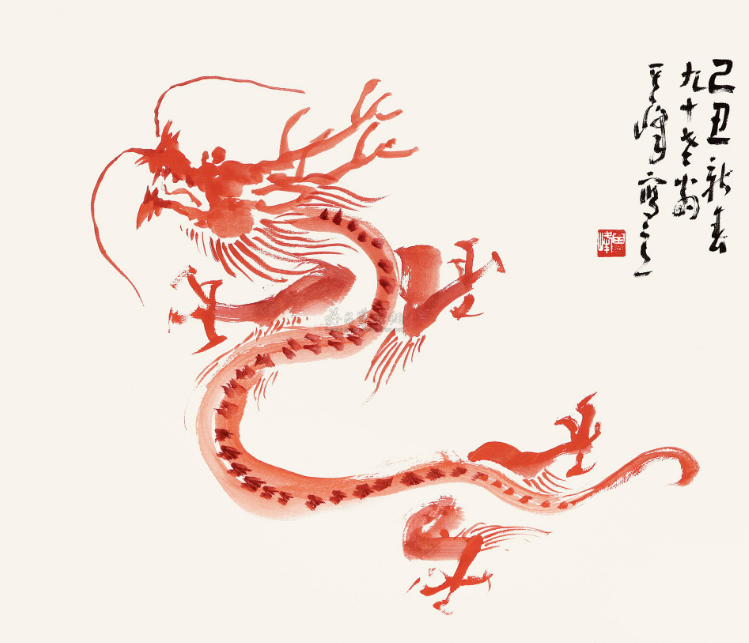 己丑新春
九十老翁
峰寫之